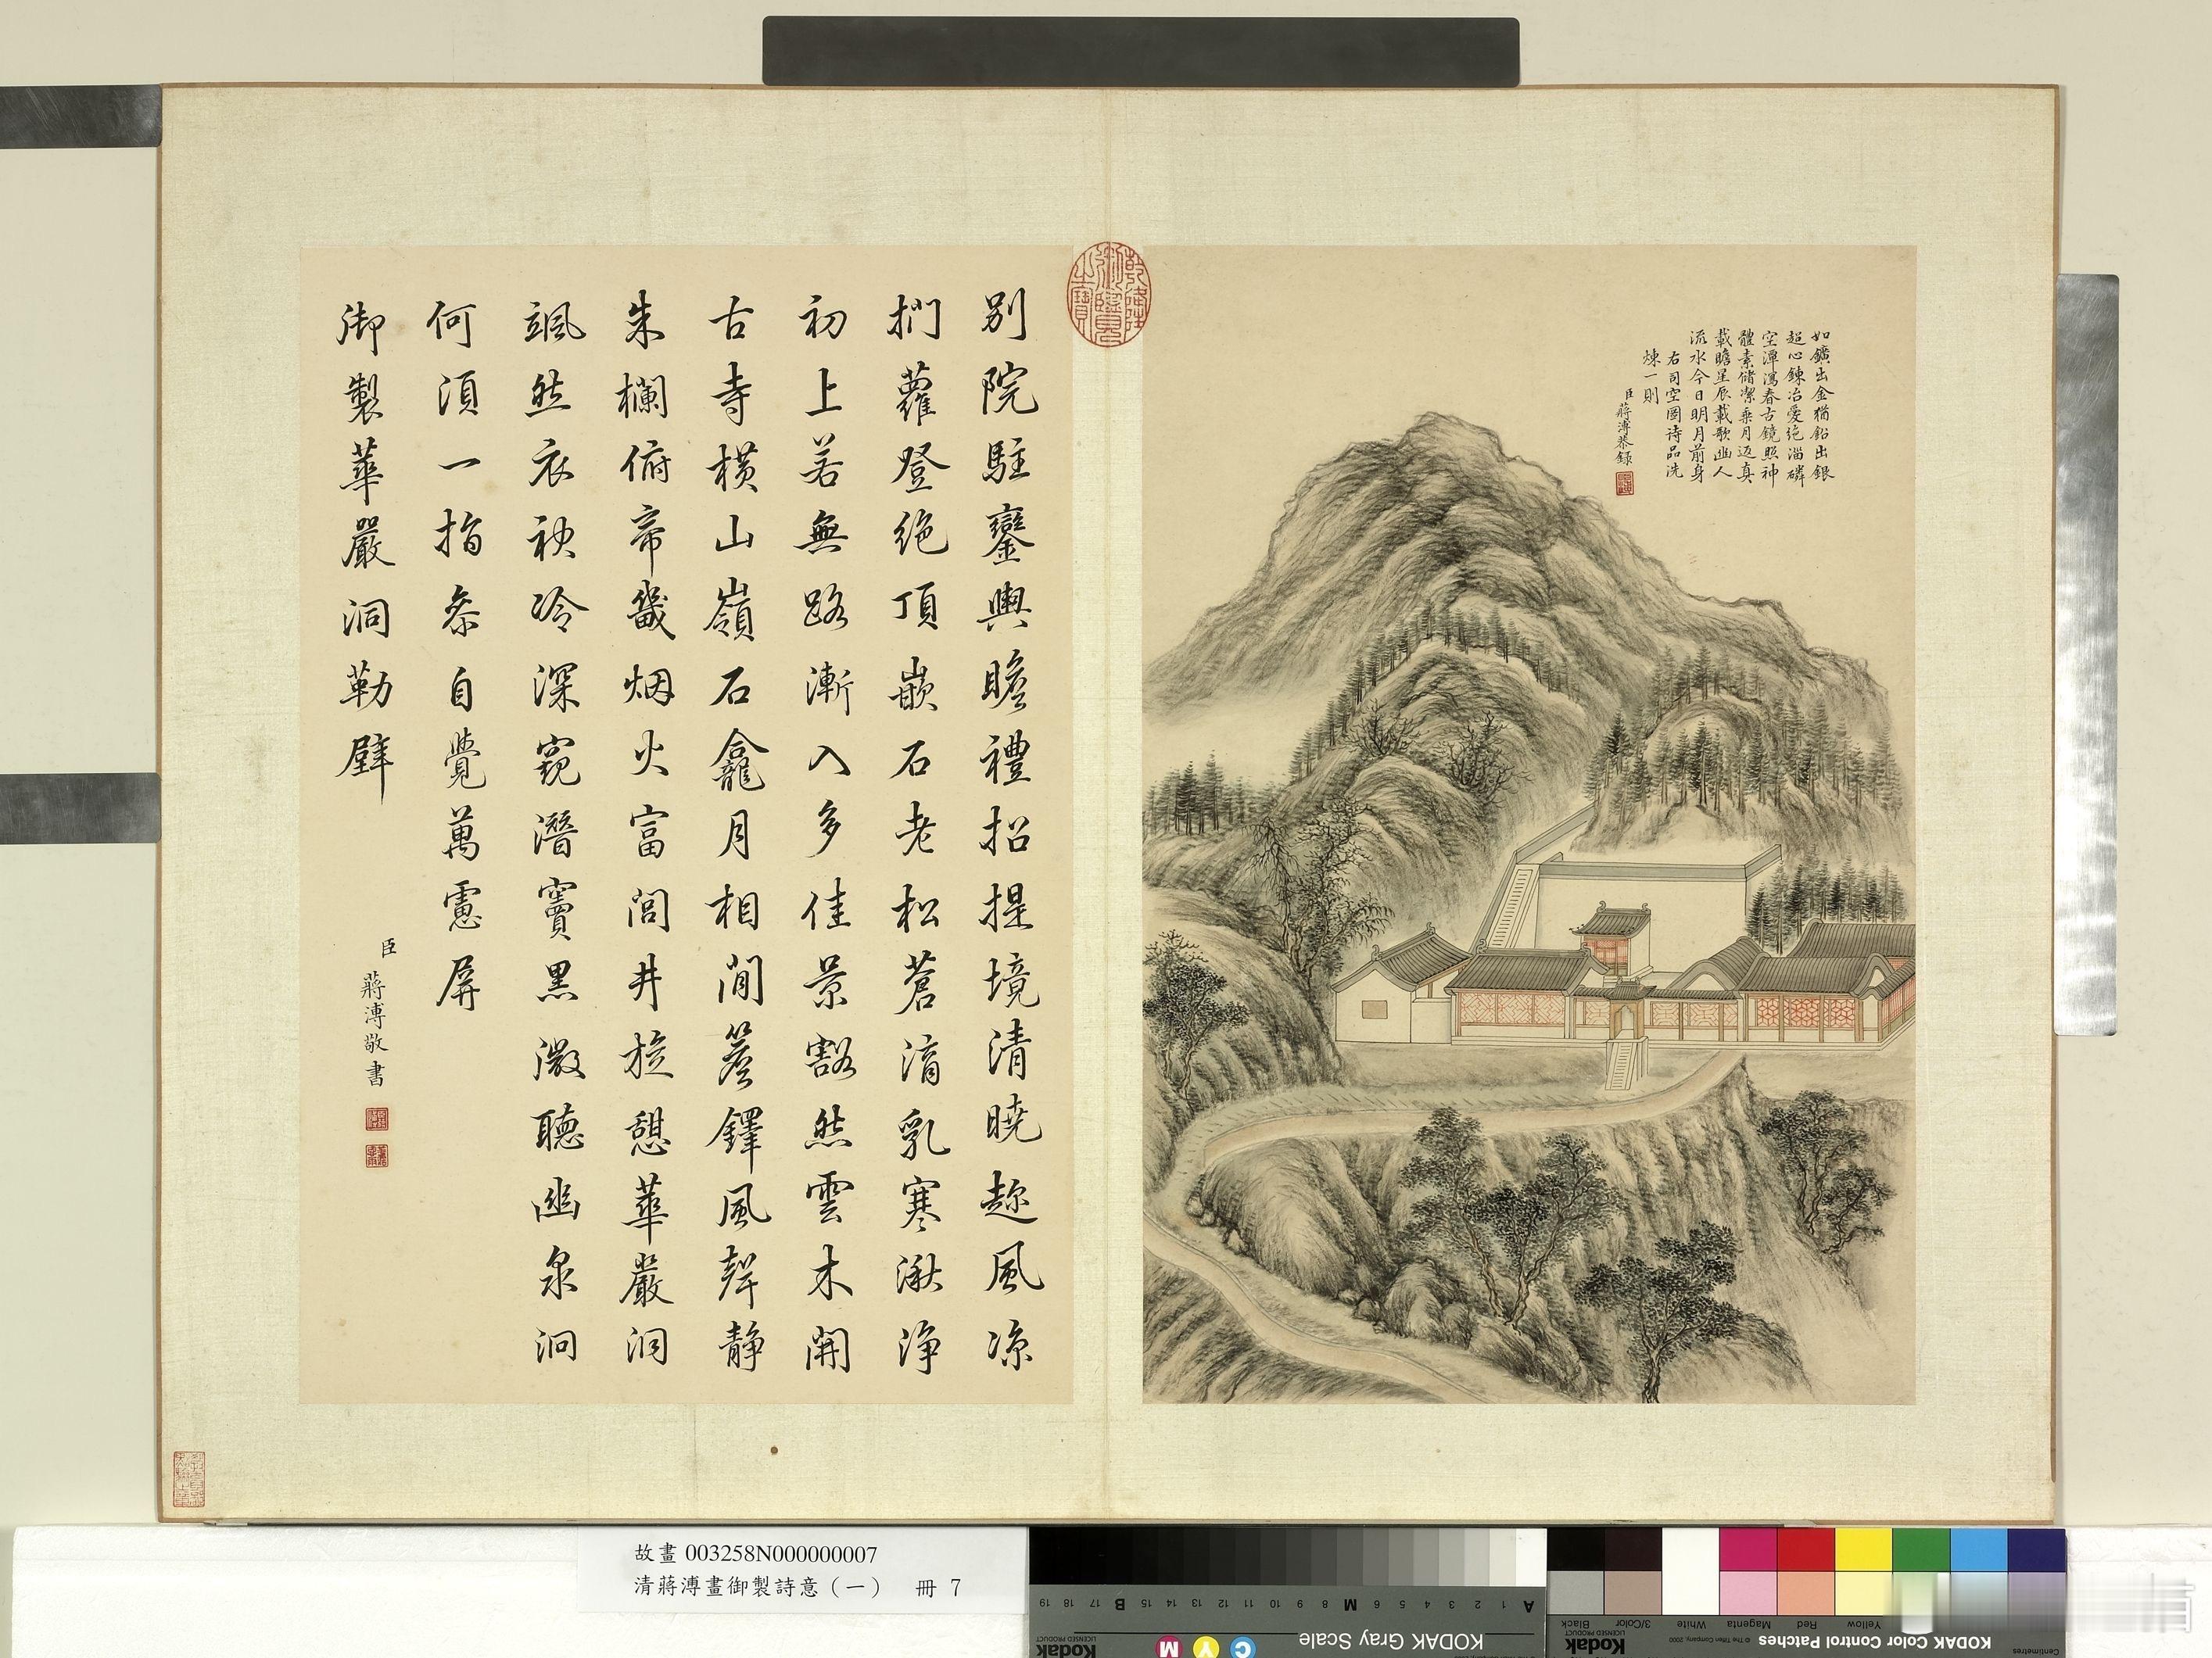 如鑛出金猶鉛出銀
超心鍊冶愛絶淄磷
空潭瀉春古鏡照神
體素儲潔乘月返真
載瞻星辰載歌幽人
流水今日明月前身
右司空圖诗品洗
煉一則
臣蔣溥恭録
乾隆御覽之寶
別院駐鑾輿瞻禮招提境清曉趂風凉
捫蘿登絶頂嵌石老松蒼淯乳寒湫淨
初上若無路漸入多佳景豁然雲木開
古寺横山嶺石龕月相閒簷鐸風聲静
朱欄俯帝畿烟火富閭井旋憩華嚴洞
颯然衣袂冷深窺潛竇黑微聽幽泉泂
何須一指参自覺萬慮屏
御製華嚴洞勒壁
臣蔣溥敬書
故畫 003258N000000007
清蔣溥畫御製詩意（一） 冊 7
KODAK Gray Scale
C Y M
Kodak
LICENSED PRODUCT
A 1 2 3 4 5 6 M 8 9 10 11 12 13 14 15 B 17 18 19
KODAK Color Control Patches
© The Tiffen Company, 2000
Kodak
LICENSED PRODUCT
Centimetres
Yellow Red Magenta White 3/Color Black